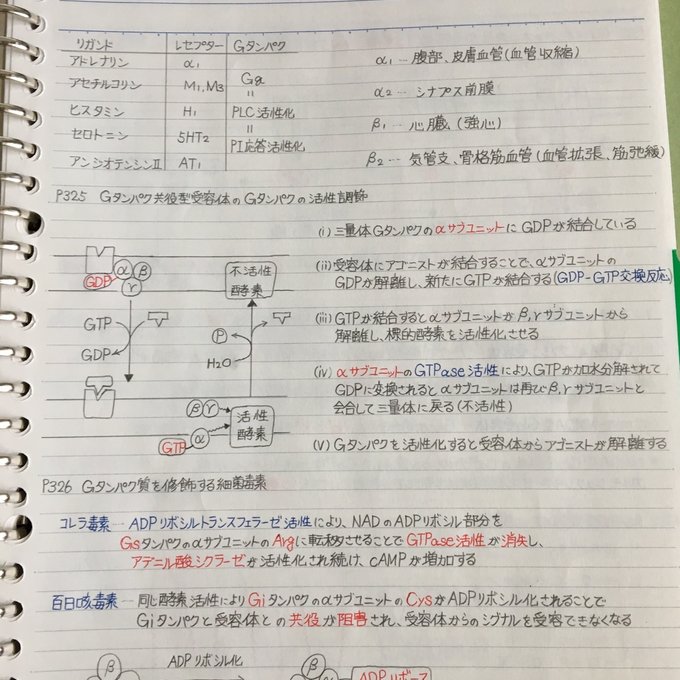 リガンド レセプター Gタンパク
アドレナリン α1
アセチルコリン M1,M3 Gq
=
ヒスタミン H1 PLC活性化
=
セロトニン 5HT2 PI応答活性化
アンジオテンシンⅡ AT1
α1…腹部、皮膚血管(血管収縮)
α2…シナプス前膜
β1…心臓(強心)
β2…気管支、骨格筋血管(血管拡張、筋弛緩)
P325 Gタンパク共役型受容体のGタンパクの活性調節
(i)三量体Gタンパクのαサブユニットに GDPが結合している
(ii)受容体にアゴニストが結合することで、αサブユニットの
GDPが解離し、新たにGTPが結合する(GDP-GTP交換反応)
(iii)GTPが結合するとαサブユニットがβ,γサブユニットから
解離し、標的酵素を活性化させる
(iv)αサブユニットのGTPase活性により、GTPが加水分解されて
GDPに変換されるとαサブユニットは再びβ,γサブユニットと
会合して三量体に戻る(不活性)
(v)Gタンパクを活性化すると受容体からアゴニストが解離する
α β
GDP γ
GTP
GDP
不活性
酵素
P
H2O
β γ
GTP α
活性
酵素
P326 Gタンパク質を修飾する細菌毒素
コレラ毒素…ADPリボシルトランスフェラーゼ活性により、NADのADPリボシル部分を
GsタンパクのαサブユニットのArgに転移させることでGTPase活性が消失し、
アデニル酸シクラーゼが活性化され続け、cAMPが増加する
百日咳毒素…同じ酵素活性によりGiタンパクのαサブユニットのCysがADPリボシル化されることで
Giタンパクと受容体との共役が阻害され、受容体からのシグナルを受容できなくなる
β ADPリボシル化 β ADPリボース